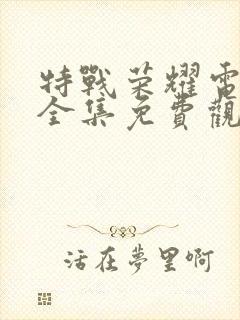 特戰荣耀電
全集免費觀
活在夢里啊